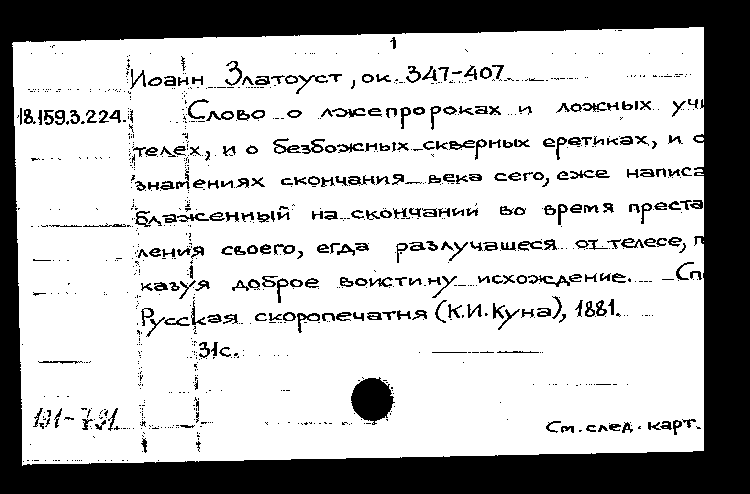 1
Иоанн Златоуст, ок. 347-407
18.159.3.224. Слово о лжепророках и ложных учи
телех, и о безбожных скверных еретиках, и о
знамениях скончания века сего, еже написа
блаженный на скончании во время преста
ления своего, егда разлучашеся от телесе, п
казуя доброе воистину исхождение. Сп
Русская скоропечатня (К.И.Куна), 1881.
31с.
См. след. карт.